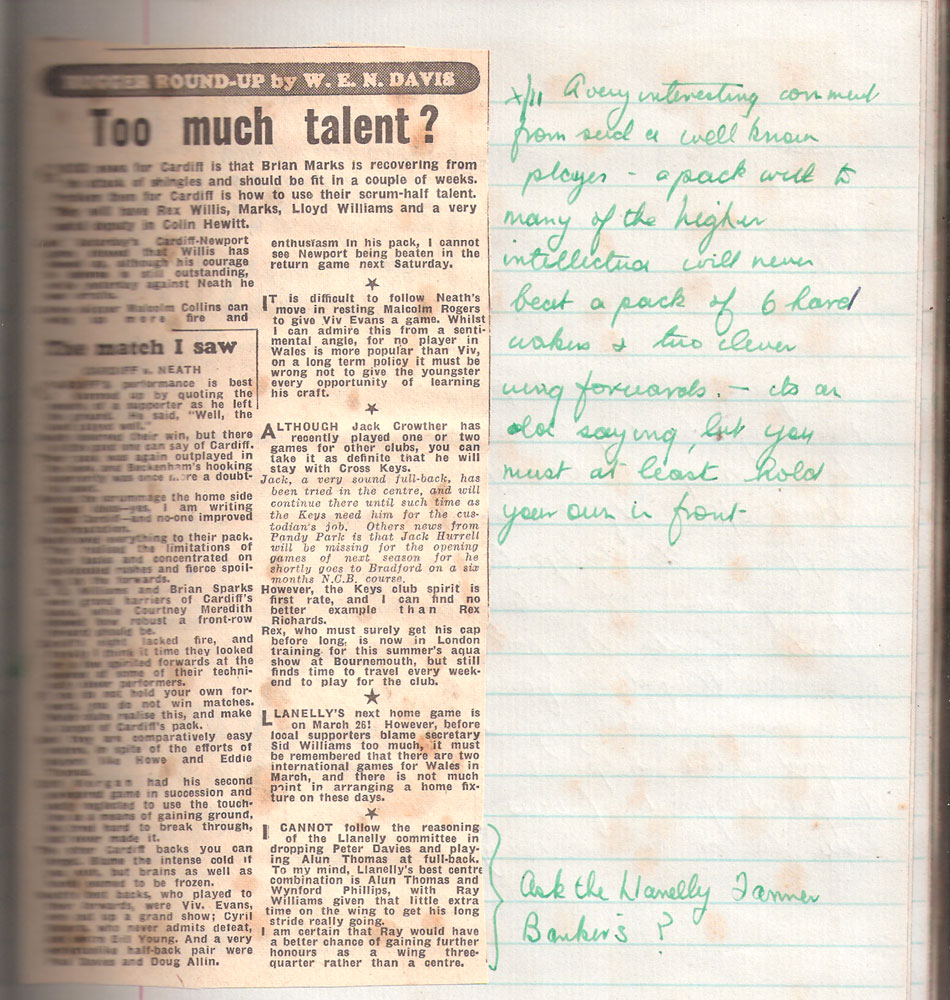 ROUND-UP by W. E. N. DAVIS
Too much talent?
news for Cardiff is that Brian Marks is recovering from
of shingles and should be fit in a couple of weeks.
for Cardiff is how to use their scrum-half talent.
will have Rex Willis, Marks, Lloyd Williams and a very
deputy in Colin Hewitt.
Cardiff-Newport
that Willis has
although his courage
still outstanding,
yesterday against Neath he
Malcolm Collins can
more fire and
The match I saw
CARDIFF v. NEATH
performance is best
up by quoting the
of a supporter as he left
He said, "Well, the
their win, but there
can say of Cardiff.
was again outplayed in
and Beckenham's hooking
was once more a doubt-
scrummage the home side
yes, I am writing
and no-one improved
everything to their pack.
the limitations of
and concentrated on
rushes and fierce spoil-
the forwards.
Williams and Brian Sparks
harriers of Cardiff's
while Courtney Meredith
how robust a front-row
should be.
lacked fire, and
it time they looked
spirited forwards at the
of some of their techni-
performers.
hold your own for-
you do not win matches.
realise this, and make
of Cardiff's pack.
they are comparatively easy
in spite of the efforts of
like Howe and Eddie
Morgan had his second
game in succession and
neglected to use the touch-
as a means of gaining ground,
hard to break through,
never made it.
other Cardiff backs you can
Blame the intense cold if
but brains as well as
seemed to be frozen.
backs, who played to
forwards, were Viv. Evans,
put up a grand show; Cyril
who never admits defeat,
Young. And a very
half-back pair were
Davies and Doug Allin.
enthusiasm in his pack, I cannot
see Newport being beaten in the
return game next Saturday.
IT is difficult to follow Neath's
move in resting Malcolm Rogers
to give Viv Evans a game. Whilst
I can admire this from a senti-
mental angle, for no player in
Wales is more popular than Viv,
on a long term policy it must be
wrong not to give the youngster
every opportunity of learning
his craft.
ALTHOUGH Jack Crowther has
recently played one or two
games for other clubs, you can
take it as definite that he will
stay with Cross Keys.
Jack, a very sound full-back, has
been tried in the centre, and will
continue there until such time as
the Keys need him for the cus-
todian's job. Others news from
Pandy Park is that Jack Hurrell
will be missing for the opening
games of next season for he
shortly goes to Bradford on a six
months N.C.B. course.
However, the Keys club spirit is
first rate, and I can find no
better example than Rex
Richards.
Rex, who must surely get his cap
before long, is now in London
training for this summer's aqua
show at Bournemouth, but still
finds time to travel every week-
end to play for the club.
LLANELLY'S next home game is
on March 26! However, before
local supporters blame secretary
Sid Williams too much, it must
be remembered that there are two
international games for Wales in
March, and there is not much
point in arranging a home fix-
ture on these days.
I CANNOT follow the reasoning
of the Llanelly committee in
dropping Peter Davies and play-
ing Alun Thomas at full-back.
To my mind, Llanelly's best centre
combination is Alun Thomas and
Wynford Phillips, with Ray
Williams given that little extra
time on the wing to get his long
stride really going.
I am certain that Ray would have
a better chance of gaining further
honours as a wing three-
quarter rather than a centre.
A very interesting comment
from such a well known
player - a pack with to
many of the higher
intellectua will never
beat a pack of 6 hard
wokers & two clever
wing forwards. - its an
old saying, but you
must at least hold
your own in front
Ask the Llanelly Tanner
Banker's ?